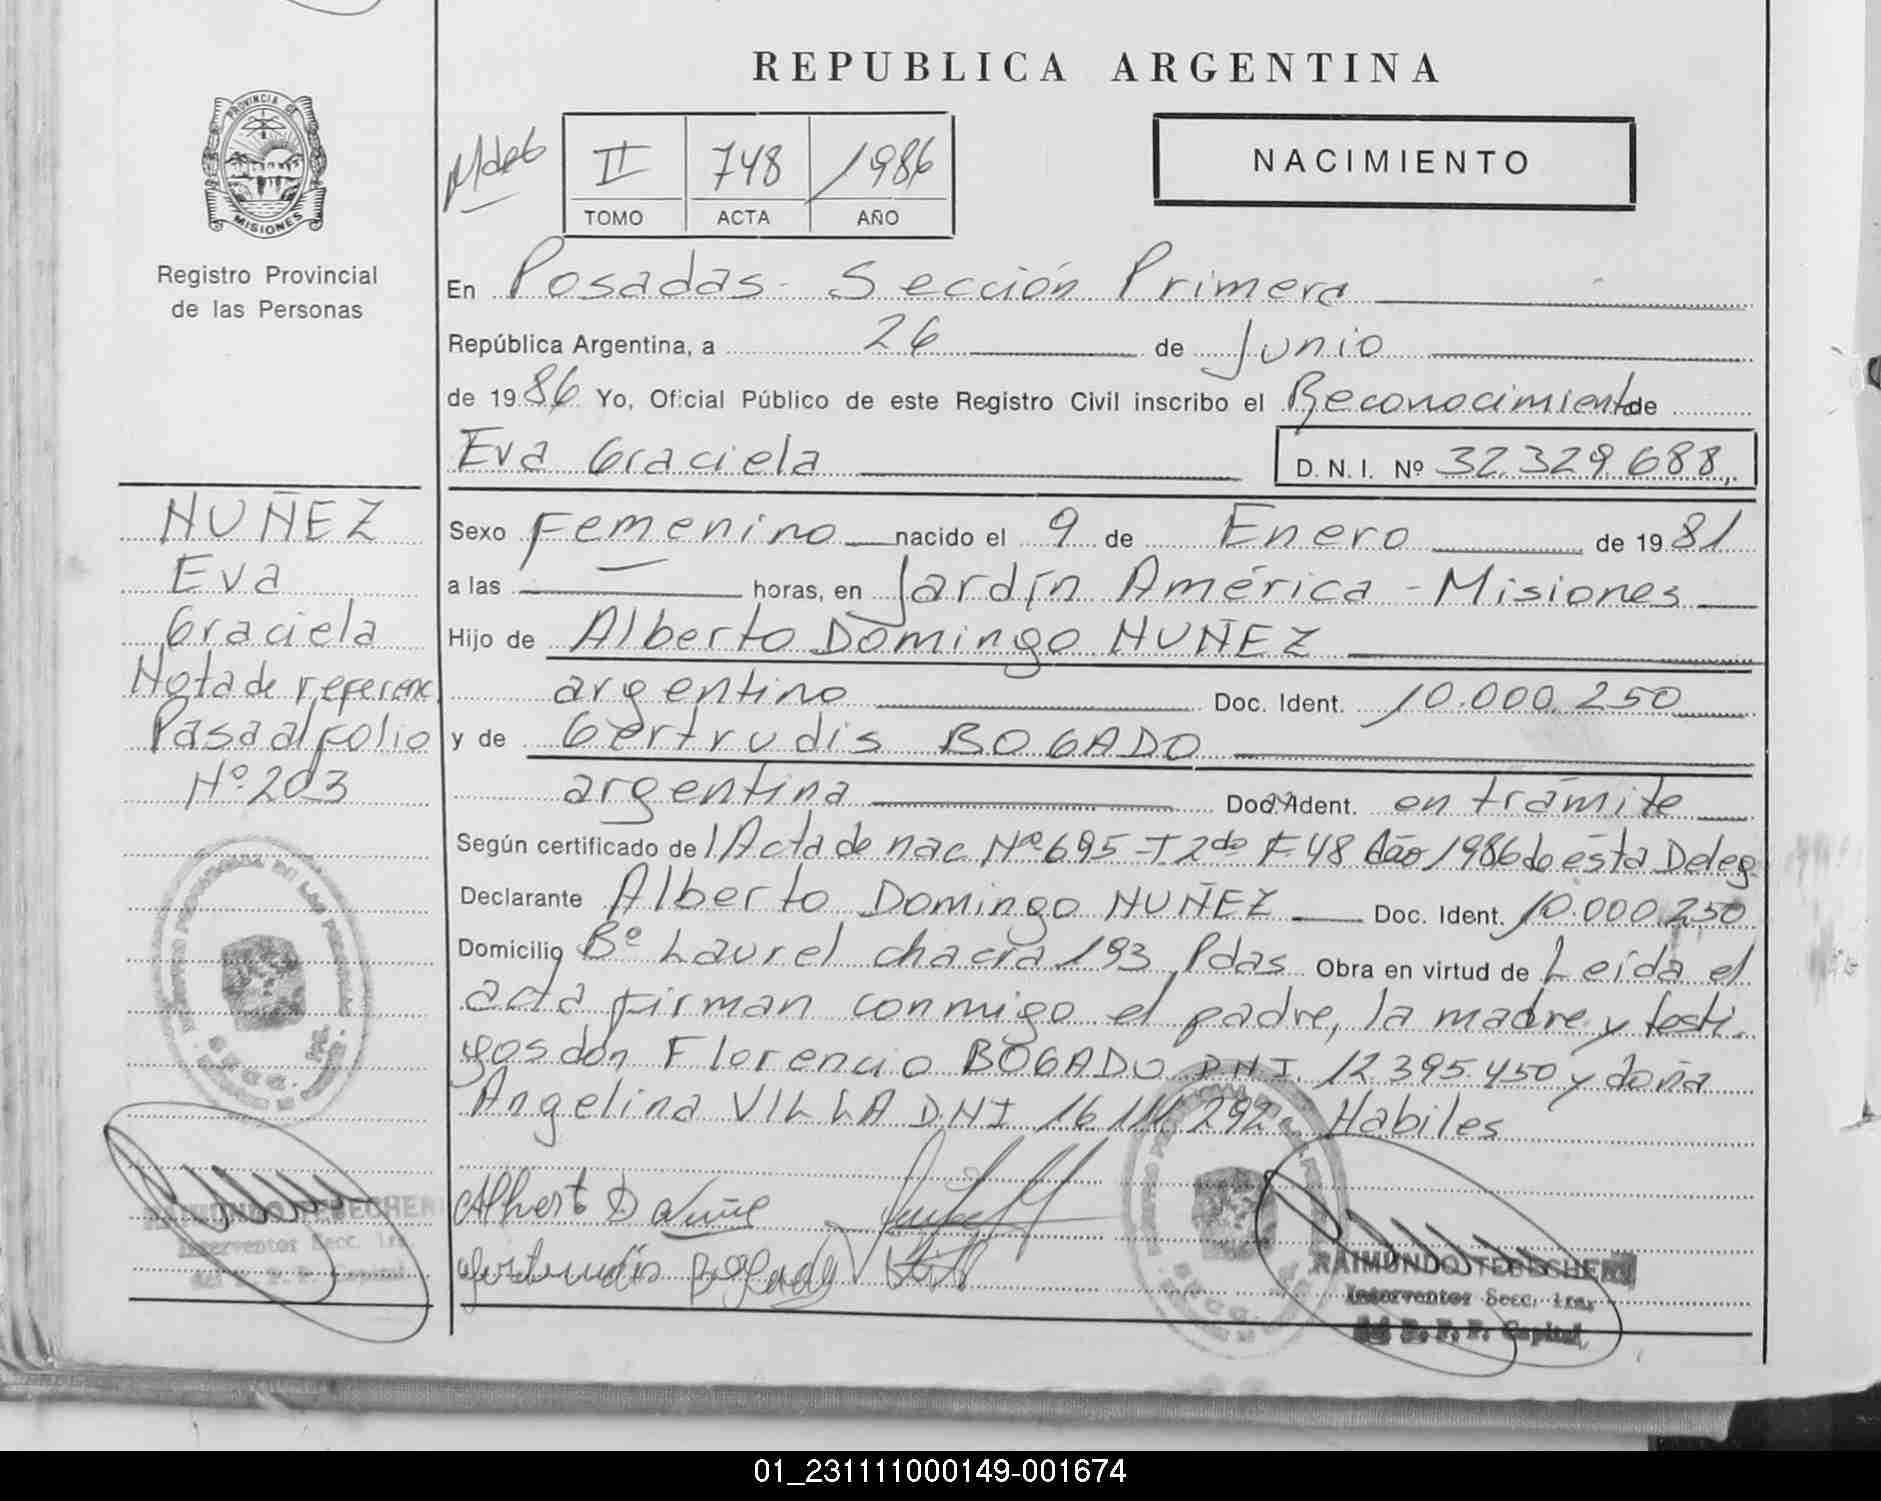 REPUBLICA ARGENTINA
PROVINCIA DE
MISIONES
Registro Provincial
de las Personas
II 748 1986
TOMO ACTA AÑO
NACIMIENTO
En Posadas - Sección Primera
República Argentina, a 26 de Junio
de 1986 Yo, Oficial Público de este Registro Civil inscribo el Reconocimiento de
Eva Graciela D. N. I. Nº 32.329.688
NUÑEZ
Eva
Graciela
Nota de referenc
Pasa al folio
Nº 203
Sexo Femenino nacido el 9 de Enero de 1981
a las horas, en Jardín América - Misiones
Hijo de Alberto Domingo NUÑEZ
argentino Doc. Ident. 10.000.250
y de Gertrudis BOGADO
argentina Doc. Ident. en trámite
Según certificado de Acta de nac Nº 695 - T 2do F 48 Año 1986 de ésta Deleg.
Declarante Alberto Domingo NUÑEZ Doc. Ident. 10.000.250
Domicilio Bº Laurel chacra 193 Pdas Obra en virtud de Leída el
acta firman conmigo el padre, la madre y testi-
gos don Florencio BOGADO DNI 12.395.450 y doña
Angelina VILLA DNI 16 292 Habiles
Gertrudis Bogado
RAIMUNDO
Interventor Secc. 1ra.
R. P. P. Capital
RAIMUNDO
Interventor Secc. 1ra.
R. P. P. Capital
01_231111000149-001674